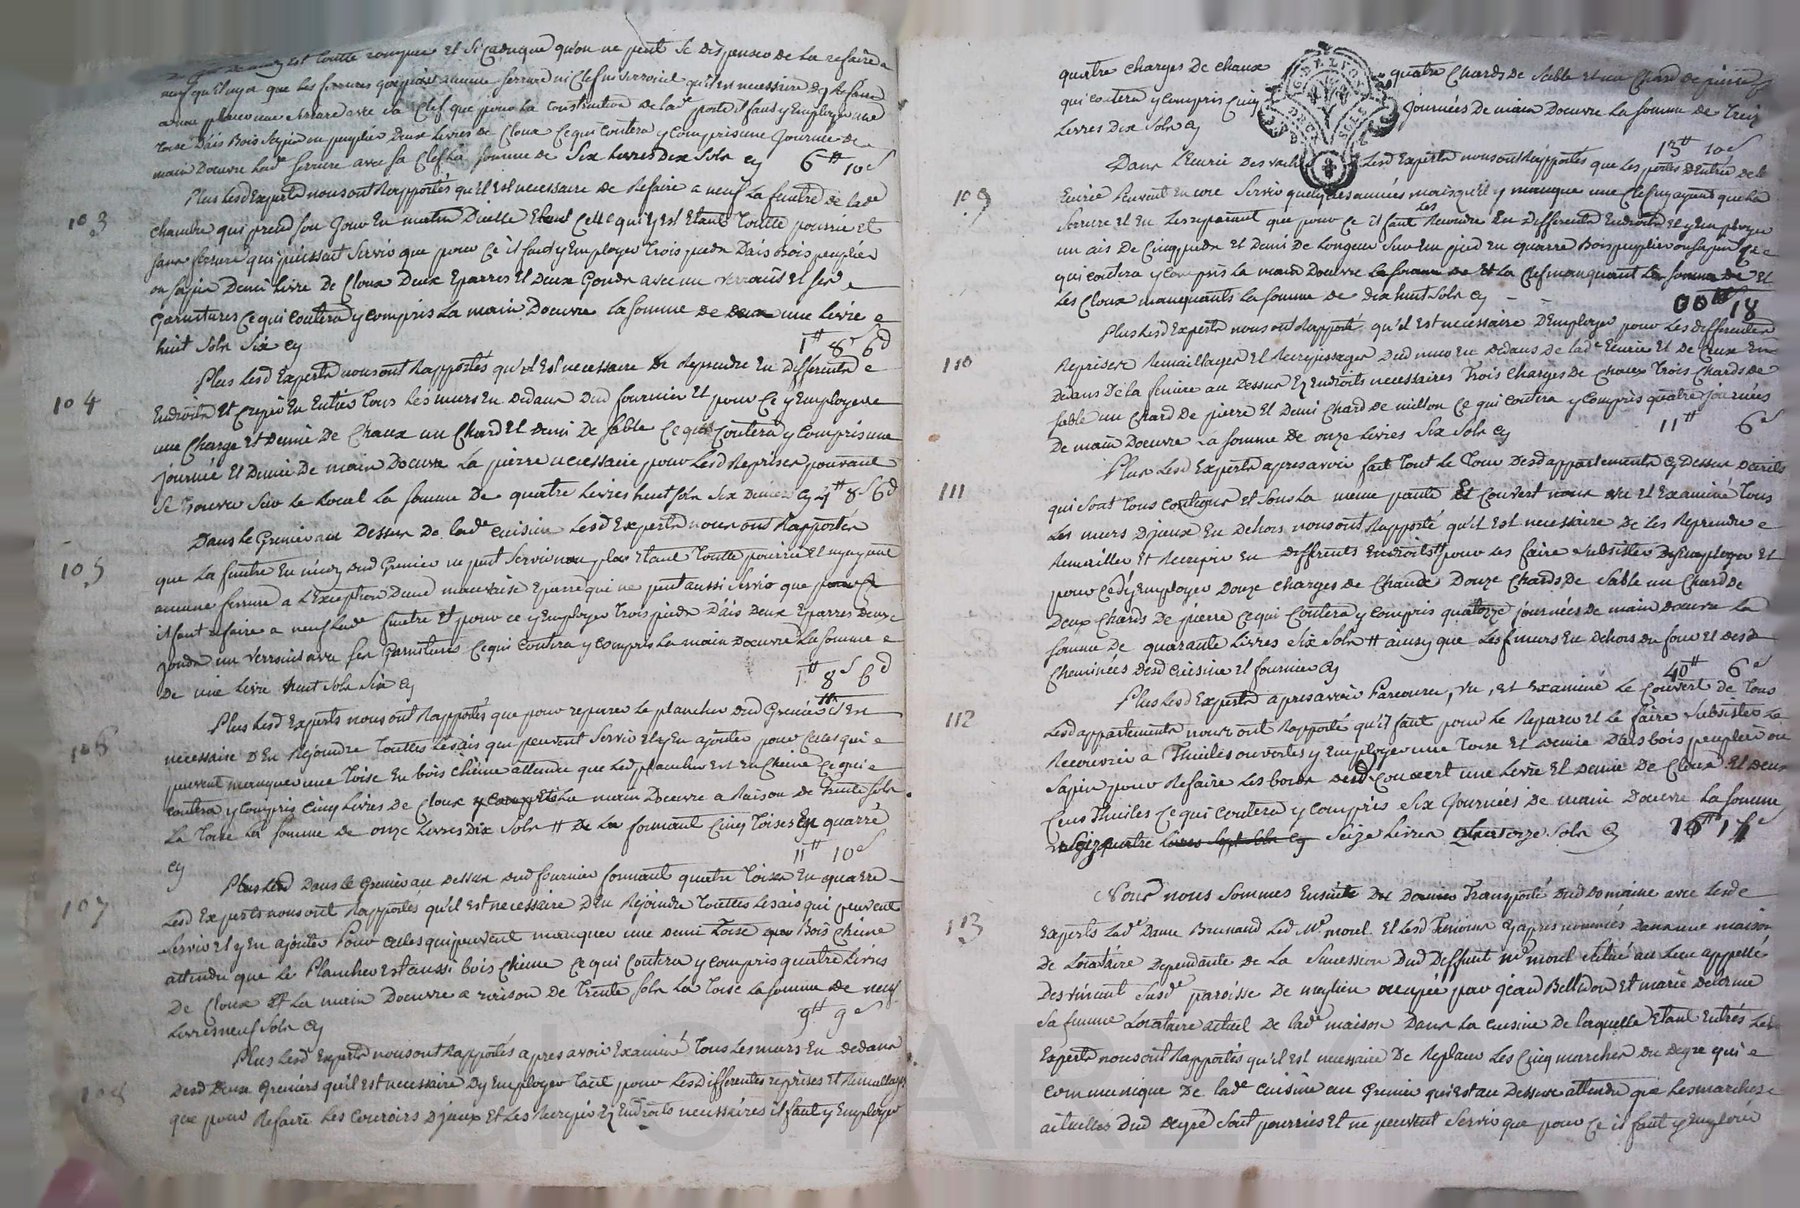 est toutte rompue et si caduque qu'on ne peut se dispenser de la refaire a
neuf qu'il ny a que les ferrures aucune serrure ni clef ni verrouil qu'il est necessaire dy Refaire
a une place une serrure avec sa Clef que pour la Construction de lad.e porte il faut y Employer une
toise D'ais Bois Sapin ou peuplier Deux Livres de Cloux Ce qui Coutera y Compris une Journée de
main Doeuvre lad.e serrure avec sa Clef La somme de Six Livres Dix Sols Cy 6tt 10s
103
Plus lesd Experts nous ont Rapportés qu'il est necessaire de Refaire a neuf La fenetre de lad.e
chambre qui prend son Jour En matin D'icelle Celle qui y Est Etant toutte pourrie et
sans ferrure qui puissent Servir que pour Ce il faut y Employer trois pieds D'ais bois peuplier
ou sapin Demi livre de Cloux Deux Eparres et Deux Gonds avec un verrouil et ses
Garnitures Ce qui Coutera y Compris La main Doeuvre la somme de deux une livre
huit sols six Cy 1tt 8s 6d
104
Plus Lesd Experts nous ont Rapportés qu'il Est necessaire de Reprendre En Differents
Endroits Et Crepir En Entier tous les murs En dedans Dud fournier Et pour Ce y Employer
une Charge et Demie De Chaux un Chard Et demi de sable Ce qui Coutera y Compris une
journée Et Demie De main Doeuvre La pierre necessaire pour Lesd Reprises pouvant
se trouver sur le Local la somme de quatre livres huit sols six Deniers Cy 4tt 8s 6d
105
Dans le Grenier au Dessus De lad.e Cuisine Lesd Experts nous ont Rapportés
que La fenetre En Dud Grenier ne peut Servir non plus Etant toutte pourrie Et nyayant
aucune ferrure a L'Exception Dune mauvaise Eparre qui ne peut aussi servir que pour Ce
il faut refaire a neuf Lad.e fenetre Et pour ce y Employer trois pieds D'ais Deux Eparres Deux
gonds un verrouil avec ses Garnitures Ce qui Coutera y Compris La main Doeuvre La somme
De une livre huit sols six Cy 1tt 8s 6d
106
Plus Lesd Experts nous ont Rapportés que pour reparer le plancher Dud Grenier il Est
necessaire D'En Rejoindre touttes Les ais qui peuvent Servir Et y En ajouter pour Celles qui
peuvent manquer une toise En bois chêne attendu que Led plancher Est En Chêne Ce qui
Coutera y Compris Cinq Livres de Cloux Et La main Doeuvre a Raison De trente sols
La toise La somme De onze Livres Dix Sols # De La formant Cinq toises En quarré
Cy 11tt 10s
107
Plus Led Dans le Grenier au Dessus Dud fournier formant quatre toises En quarré
Lesd Experts nous ont Rapportés qu'il est necessaire D'En Rejoindre touttes Les ais qui peuvent
Servir Et y En ajouter Pour Celles qui peuvent manquer une demi toise Bois Chêne
attendu que Le Plancher Est aussi bois Chêne Ce qui Coutera y Compris quatre Livres
De Cloux Et La main Doeuvre a raison de trente sols La toise La somme De neuf
Livres neuf sols Cy 9tt 9s
108
Plus Lesd Experts nous ont Rapportés apres avoir Examiné tous Les murs En dedans
Desd Deux Greniers qu'il est necessaire Dy Employer tant pour Les Differentes reprises Et Remaillages
que pour Refaire Les Couroirs D'jeux Et Les Recrepir Ez Endroits necessaires il faut y Employer
quatre charges de chaux quatre Chards De Sable et un Chard De pierre
qui coutera y compris Cinq Journées De main Doeuvre La somme de treize
Livres Dix Sols Cy 13tt 10s
109
Dans L'Ecurie des vaches Lesd Experts nous ont Rapportés que Les portes D'Entrée de l'
Ecurie Peuvent Encore Servir quelques années mais qu'il y manque une Clef nyayant que la
serrure Et En Les reparant que pour Ce il faut les Recoudre En Differents Endroits et y Employer
un ais De Cinq pieds Et Demi De Longueur Sur un pied En quarré Bois peuplier ou Sapin Ce
qui Coutera y Compris La main Doeuvre la somme de Et La Clef manquant la somme de Et
Les Cloux manquants La somme De dix huit Sols Cy 00tt 18
110
Plus Lesd Experts nous ont Rapporté qu'il Est necessaire D'Employer pour Les differentes
Reprises Remaillages Et Recrepissages Dud murs En Dedans de lad.e Ecurie Et De Ceux En
Dedans De la feniere au Dessus Ez Endroits necessaires trois Charges De Chaux trois Chards De
sable un Chard De pierre Et Demi Chard De millon Ce qui Coutera y Compris quatre journées
De main Doeuvre La somme De onze Livres Six Sols Cy 11tt 6s
111
Plus Lesd Experts apres avoir fait tout Le tour Desd appartements Cy Dessus Decrits
qui sont tous Contigus Et Sous La meme pante Et Couvert nous vu Et Examiné tous
Les murs D'jeux En Dehors nous ont Rapporté qu'il Est necessaire De Les Reprendre
Remailler Et Recrepir En Differents Endroits pour Les faire Subsister D'y Employer Et
pour Ce d'y Employer Douze Charges De Chaux Douze Chards De Sable un Chard De
Deux Chards De pierre Ce qui Coutera y Compris quatorze journées De main Doeuvre La
somme De quarante Livres Six Sols # ainsy que Les murs En Dehors Du four Et Desd
Cheminées Desd Cuisine Et fournier Cy 40tt 6s
112
Plus Lesd Experts apres avoir Parcouru, vu, et Examiné Le Couvert De tous
Lesd appartements nous ont Rapporté qu'il faut pour Le Reparer Et Le faire Subsister Le
Recouvrir a Thuiles ouvertes y Employer une toise Et Demie D'ais bois peuplier ou
Sapin pour Refaire Les bords Desd Couvert une Livre Et Demie De Cloux Et Deux
Cens Thuiles Ce qui Coutera y Compris Six Journées De main Doeuvre La somme
Livres Sept Sols Cy Seize Livres Quatorze Sols Cy 16tt 14s
113
nous Sommes Ensuite De Demain Transporté Dud Domaine avec Lesd
Experts Lad.e Dame Brunaud Led M.r morel Et Lesd Temoins Cy apres nommés Dans une maison
De Locataire Dependante De La Succession Dud Deffunt M.r morel Située au Lieu appellé
Des vincent Susd.e paroisse De meylieu occupée par Jean Bellidon Et marie Delorme
sa femme Locataire actuel De lad.e maison Dans La Cuisine De laquelle Etant Entrés Lesd
Experts nous ont Rapportés qu'il Est necessaire De Replacer Les Cinq marches Du Degré qui
Communique De lad.e Cuisine au Grenier qui Est au Dessus attendu que Les marches
actuelles Dud Degré Sont pourries Et ne peuvent Servir que pour Ce il faut y Employer